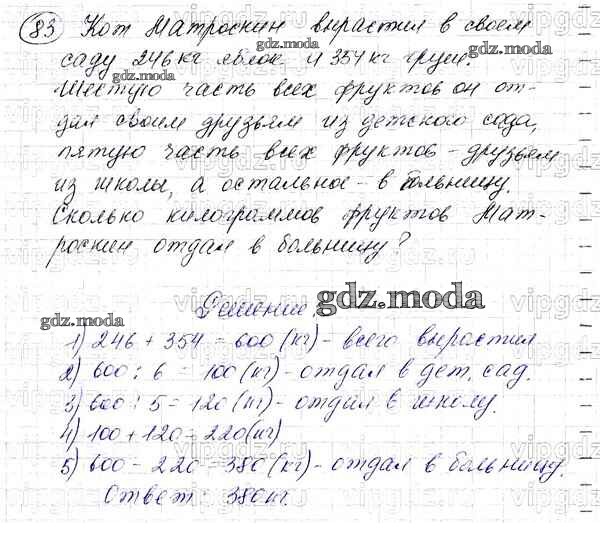 83 Кот Матроскин вырастил в своем
саду 246 кг яблок и 354 кг груш.
Шестую часть всех фруктов он от-
дал своим друзьям из детского сада,
пятую часть всех фруктов - друзьям
из школы, а остальное - в больницу.
Сколько килограммов фруктов Мат-
роскин отдал в больницу?
Решение
gdz.moda
1) 246 + 354 = 600 (кг) - всего вырастил
2) 600 : 6 = 100 (кг) - отдал в дет. сад.
3) 600 : 5 = 120 (кг) - отдал в школу.
4) 100 + 120 = 220 (кг)
5) 600 - 220 = 380 (кг) - отдал в больницу.
Ответ: 380 кг.